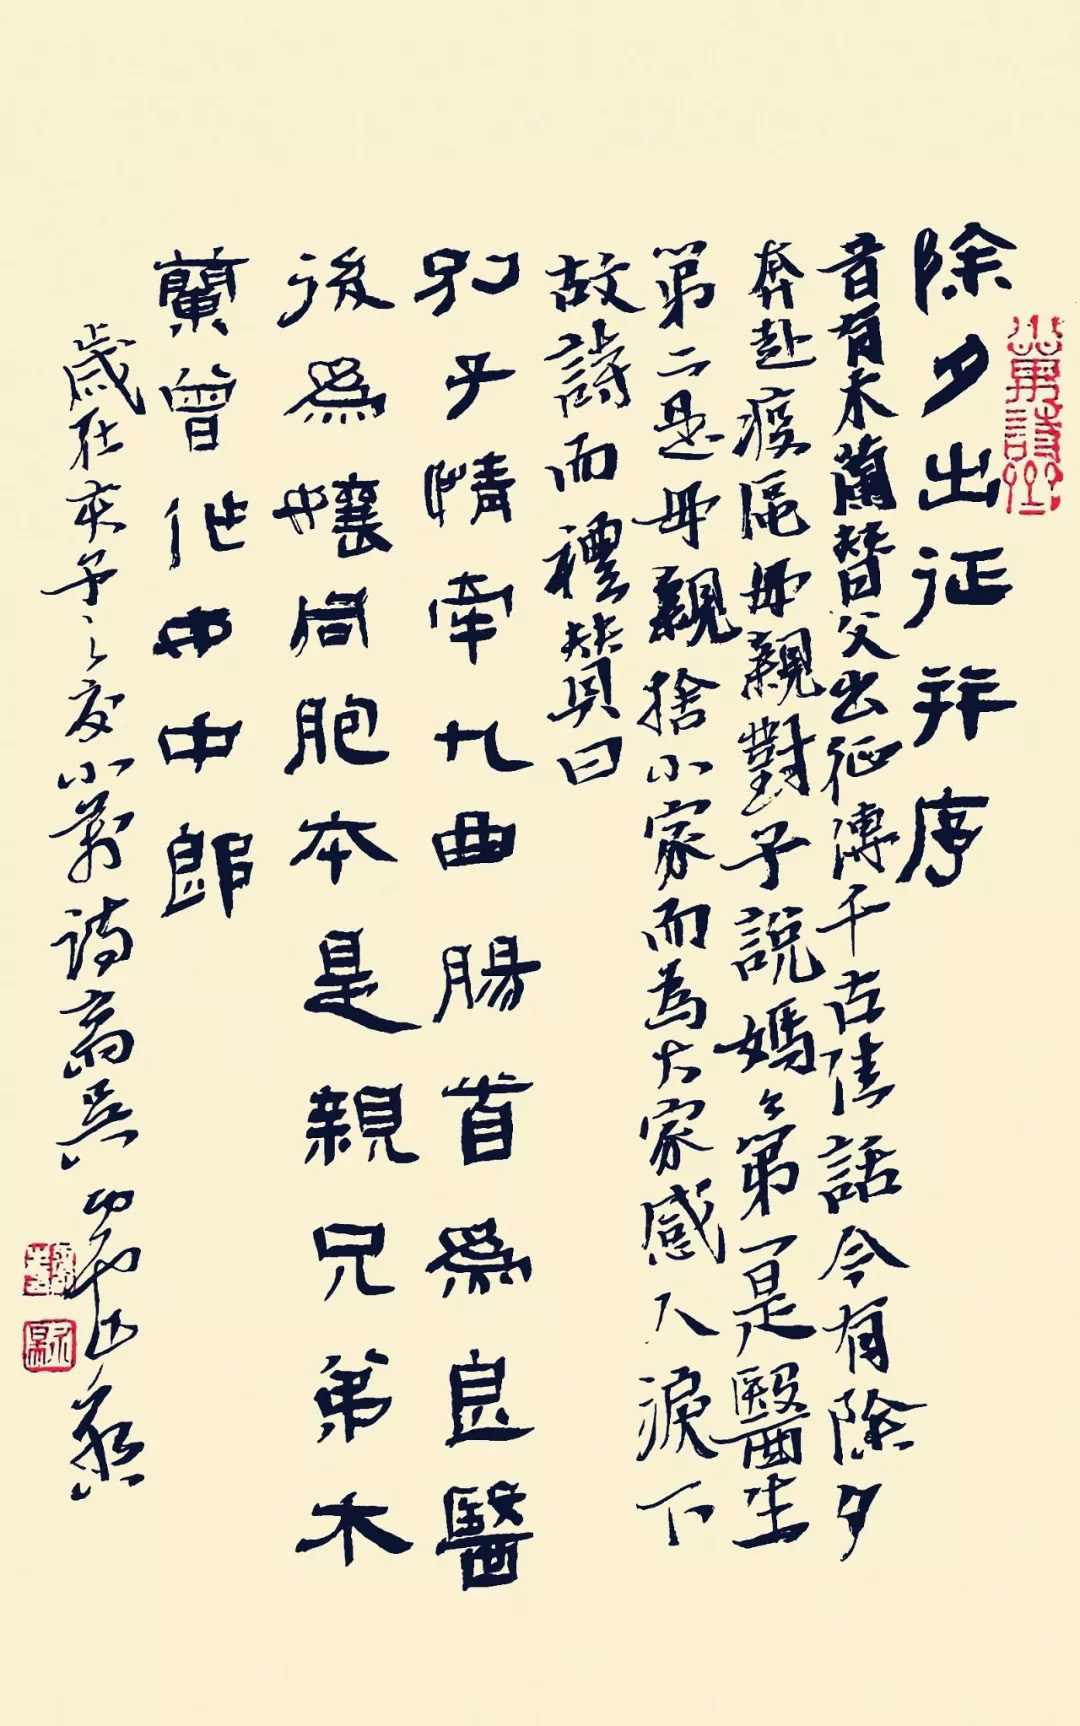 除夕出征并序
昔有木蘭替父出征傳千古佳話今有除夕
奔赴疫區母親對子說媽々第一是醫生
第二是母親捨小家而為大家感人淚下
故詩而禮贊曰
別子情牽九曲腸首爲良醫
後爲孃同胞本是親兄弟木
蘭曾作女中郎
歲在庚子之夏小萬詩高兵